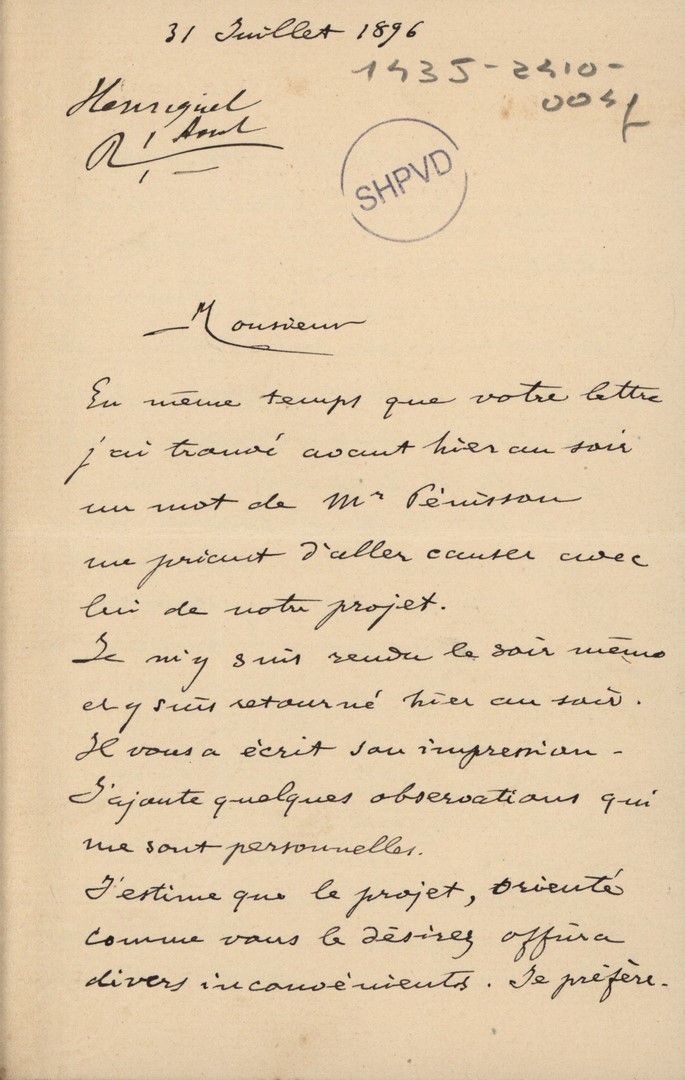 31 Juillet 1896
1435-2410-
004f
Henriquel
R 1 Aout
SHPVD
Monsieur
En même temps que votre lettre
j'ai trouvé avant hier au soir
un mot de Mr Pénisson
me priant d'aller causer avec
lui de notre projet.
Je m'y suis rendu le soir même
et y suis retourné hier au soir.
Il vous a écrit son impression -
J'ajoute quelques observations qui
me sont personnelles.
J'estime que le projet, orienté
comme vous le désirez offrira
divers inconvénients. Je préfère-